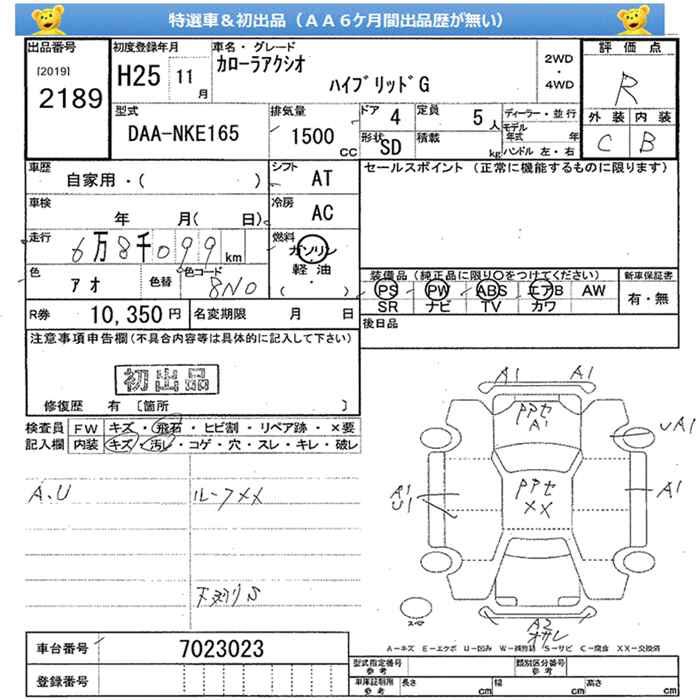 特選車＆初出品（ＡＡ６ケ月間出品歴が無い）
出品番号
[2019]
2189
初度登録年月
H25 11月
車名・グレード
カローラアクシオ
ハイブリッドG
2WD
・
4WD
評価点
R
外装 内装
C B
型式
DAA-NKE165
排気量
1500
CC
ドア 4
定員 5人
形状 SD
積載 kg
ディーラー・並行
モデル年式 年
ハンドル 左・右
車歴
自家用・( )
シフト
AT
セールスポイント（正常に機能するものに限ります）
車検
年 月( 日)
冷房
AC
走行
6万8千099km
燃料
ガソリン
・
軽油
( )
色
アオ
色替
色コード
8N0
装備品（純正品に限り○をつけてください）
PS PW ABS エアB AW
SR ナビ TV カワ
新車保証書
有・無
R券 10,350円
名変期限 月 日
後日品
注意事項申告欄(不具合内容等は具体的に記入して下さい)
初出品
修復歴 有 [箇所 ]
検査員
記入欄
FW キズ・飛石・ヒビ割・リペア跡・×要
内装 キズ・汚レ・コゲ・穴・スレ・キレ・破レ
A.U
ルーフXX
下刻リS
A1 A1
PPセ
A1
UA1
A1
U1
PPセ
XX
A1
A2
オサレ
スペア
A－キズ E－エクボ U－凹み W－補修跡 S－サビ C－腐食 XX－交換済
車台番号 7023023
登録番号
型式指定番号
参考
類別区分番号
参考
車庫証明用
参考
長さ cm
幅 cm
高さ cm